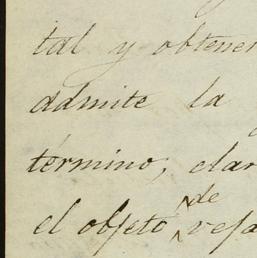 tal y obtener
admite la
término, clar
el objeto de veja